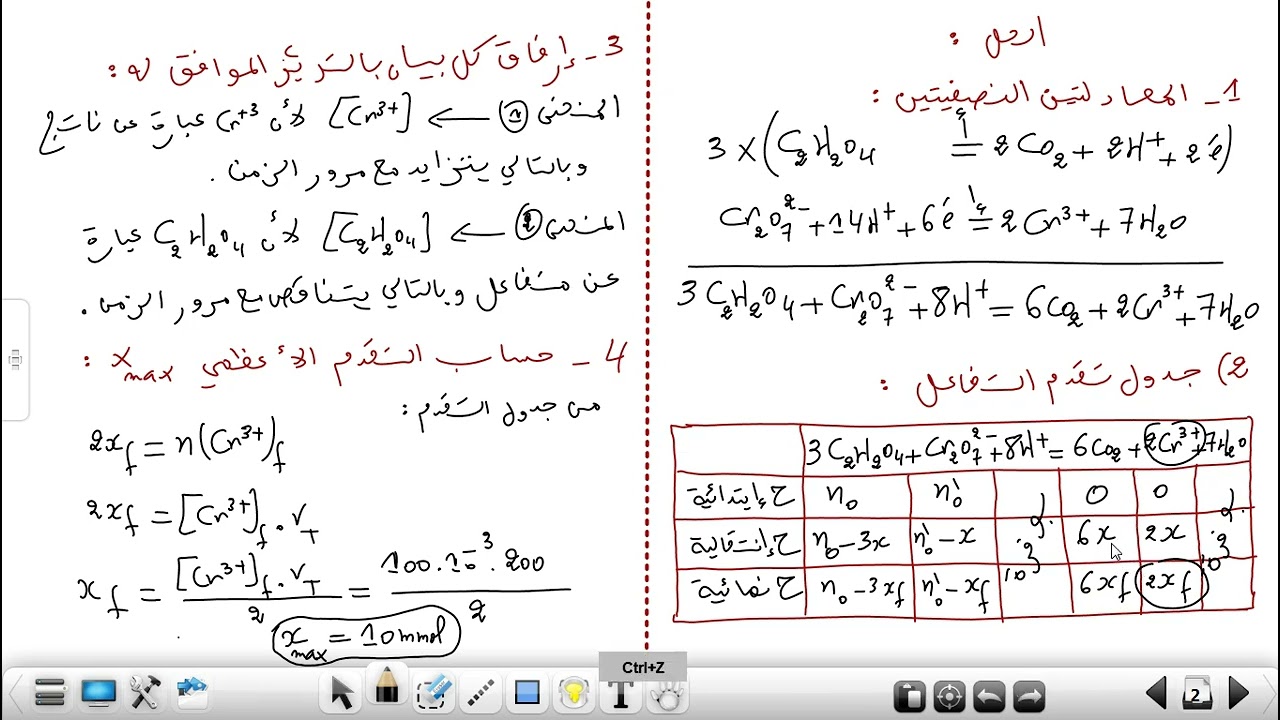 الحل :
1 - المعادلتين النصفيتين :
3 × (C₂H₂O₄ = 2CO₂ + 2H⁺ + 2é)
Cr₂O₇²⁻ + 14H⁺ + 6é = 2Cr³⁺ + 7H₂O
3C₂H₂O₄ + Cr₂O₇²⁻ + 8H⁺ = 6CO₂ + 2Cr³⁺ + 7H₂O
2) جدول تقدم التفاعل :
3C₂H₂O₄ + Cr₂O₇²⁻ + 8H⁺ = 6CO₂ + 2Cr³⁺ + 7H₂O
ح إبتدائية n₀ n₀' 0 0
ح إنتقالية n₀ - 3x n₀' - x 6x 2x
ح نهائية n₀ - 3xf n₀' - xf 6xf 2xf
3 - إرفاق كل بيان بالتركيز الموافق له :
المنحنى ① ← [Cr³⁺] لأن Cr⁺³ عبارة عن ناتج
وبالتالي يتزايد مع مرور الزمن .
المنحنى ② ← [C₂H₂O₄] لأن C₂H₂O₄ عبارة
عن متفاعل وبالتالي يتناقص مع مرور الزمن .
4 - حساب التقدم الأعظمي xmax :
من جدول التقدم :
2xf = n(Cr³⁺)f
2xf = [Cr³⁺]f . VT
xf = [Cr³⁺]f . VT / 2 = 100.10⁻³.200 / 2
xmax = 10 mmol
Ctrl+Z
T
2